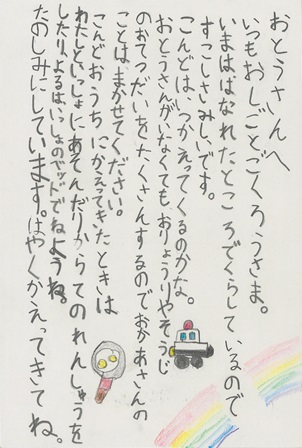 おとうさんへ
いつもおしごとごくろうさま。
いまははなれたところでくらしているので
すこしさみしいです。
こんどは、いつかえってくるのかな。
おとうさんがいなくてもおりょうりやそうじ
のおてつだいをたくさんするのでおかあさんの
ことは、まかせてください。
こんどおうちにかえってきたときは
わたしといっしょにあそんだりからてのれんしゅうを
したり、よるはいっしょのベッドでねようね。
たのしみにしています。はやくかえってきてね。